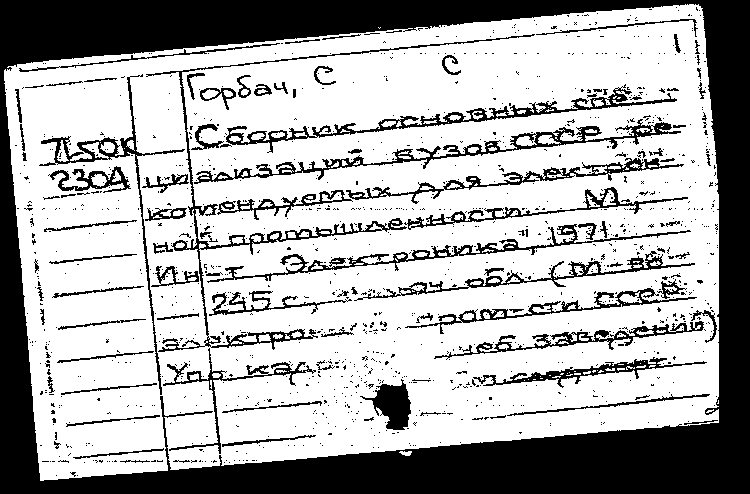 1
Горбач, С С
Сборник основных спе-
циализаций вузов СССР, ре-
комендуемых для электрон-
ной промышленности. М.,
Ин-т "Электроника", 1971
245 с., включ. обл. (М-во
электрон. пром-сти СССР.
Упр. кадр учеб. заведений)
См. след. карт.